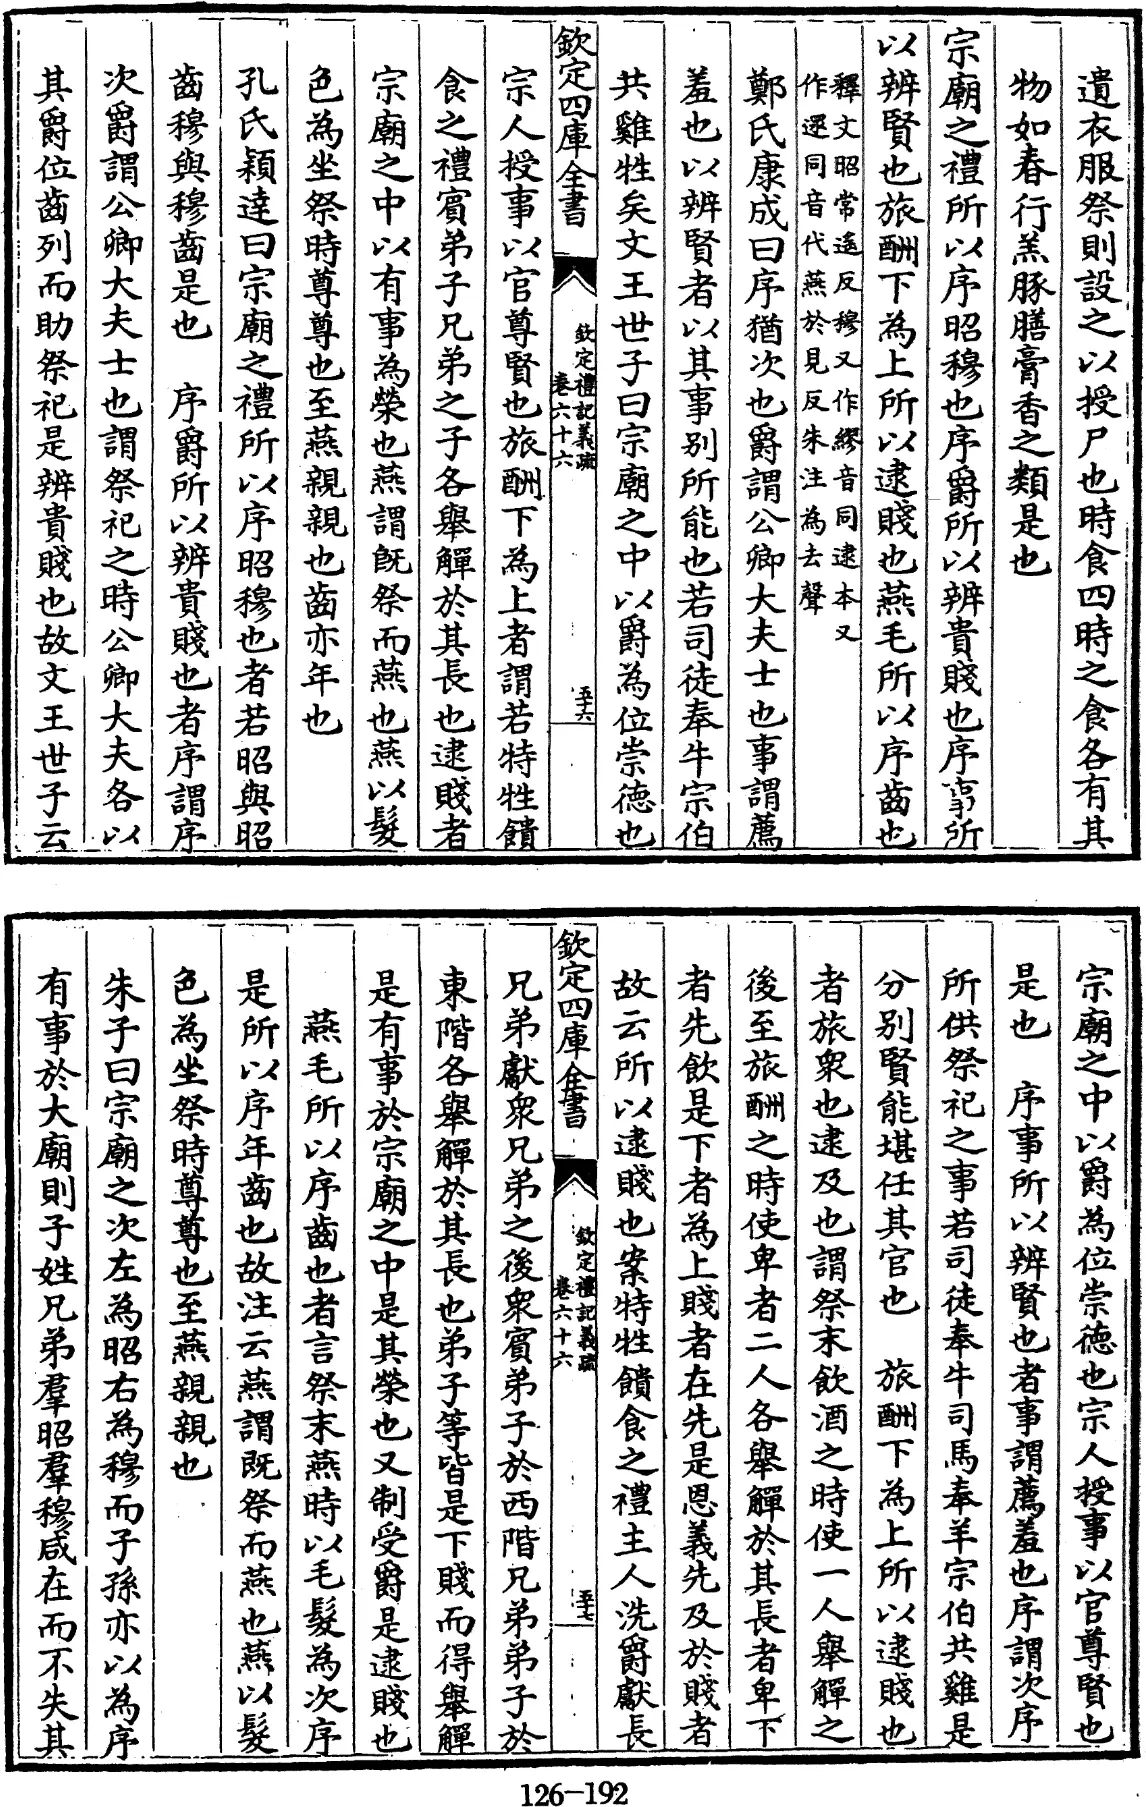 遺衣服祭則設之以授尸也時食四時之食各有其
物如春行羔豚膳膏香之類是也
宗廟之禮所以序昭穆也序爵所以辨貴賤也序事所
以辨賢也旅酬下為上所以逮賤也燕毛所以序齒也
釋文昭常遙反穆又作繆音同逮本又
作逻同音代燕於見反朱注為去聲
鄭氏康成曰序猶次也爵謂公卿大夫士也事謂薦
羞也以辨賢者以其事別所能也若司徒奉牛宗伯
共雞牲矣文王世子曰宗廟之中以爵為位崇德也
欽定四庫全書
欽定禮記義疏
卷六十六
五十六
宗人授事以官尊賢也旅酬下為上者謂若特牲饋
食之禮賓弟子兄弟之子各舉觶於其長也逮賤者
宗廟之中以有事為榮也燕謂既祭而燕也燕以髮
色為坐祭時尊尊也至燕親親也齒亦年也
孔氏穎達曰宗廟之禮所以序昭穆也者若昭與昭
齒穆與穆齒是也　序爵所以辨貴賤也者序謂序
次爵謂公卿大夫士也謂祭祀之時公卿大夫各以
其爵位齒列而助祭祀是辨貴賤也故文王世子云
宗廟之中以爵為位崇德也宗人授事以官尊賢也
是也　序事所以辨賢也者事謂薦羞也序謂次序
所供祭祀之事若司徒奉牛司馬奉羊宗伯共雞是
分別賢能堪任其官也　旅酬下為上所以逮賤也
者旅衆也逮及也謂祭末飲酒之時使一人舉觶之
後至旅酬之時使卑者二人各舉觶於其長者卑下
者先飲是下者為上賤者在先是恩義先及於賤者
故云所以逮賤也案特牲饋食之禮主人洗爵獻長
欽定四庫全書
欽定禮記義疏
卷六十六
五十七
兄弟獻衆兄弟之後衆賓弟子於西階兄弟弟子於
東階各舉觶於其長也弟子等皆是下賤而得舉觶
是有事於宗廟之中是其榮也又制受爵是逮賤也
燕毛所以序齒也者言祭末燕時以毛髮為次序
是所以序年齒也故注云燕謂既祭而燕也燕以髮
色為坐祭時尊尊也至燕親親也
朱子曰宗廟之次左為昭右為穆而子孫亦以為序
有事於大廟則子姓兄弟羣昭羣穆咸在而不失其
126-192